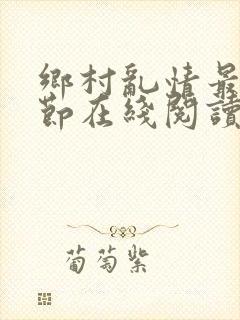 鄉村亂情最
節在綫閱讀
葡萄紫